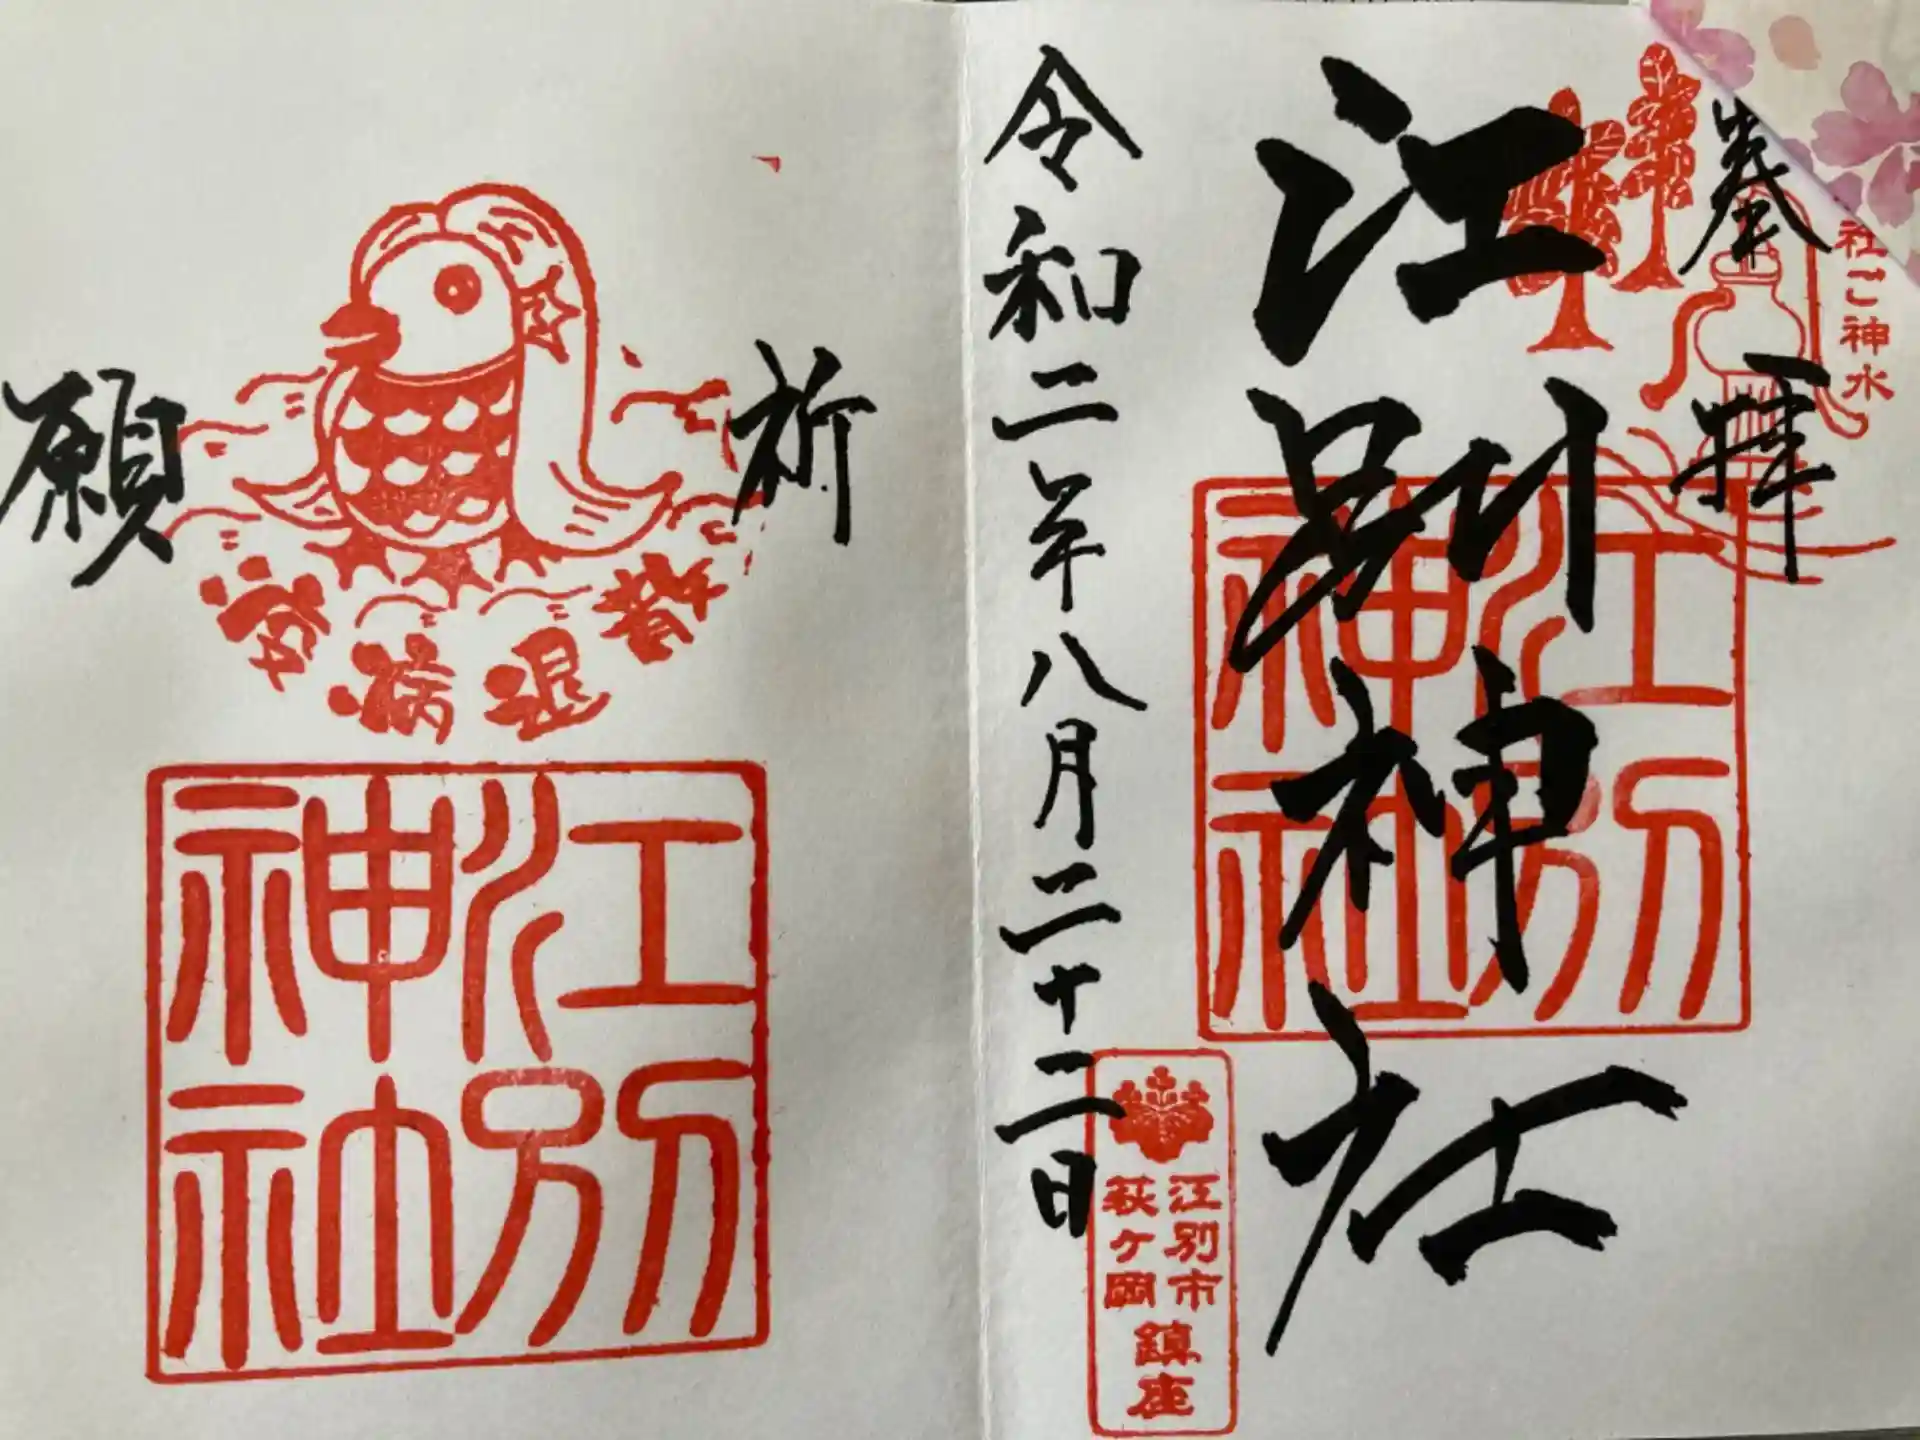 奉拝
社ご神水
江別神社
江別
神社
令和二年八月二十二日
江別市
萩ヶ岡
鎮座
祈願
疫病退散
江別
神社